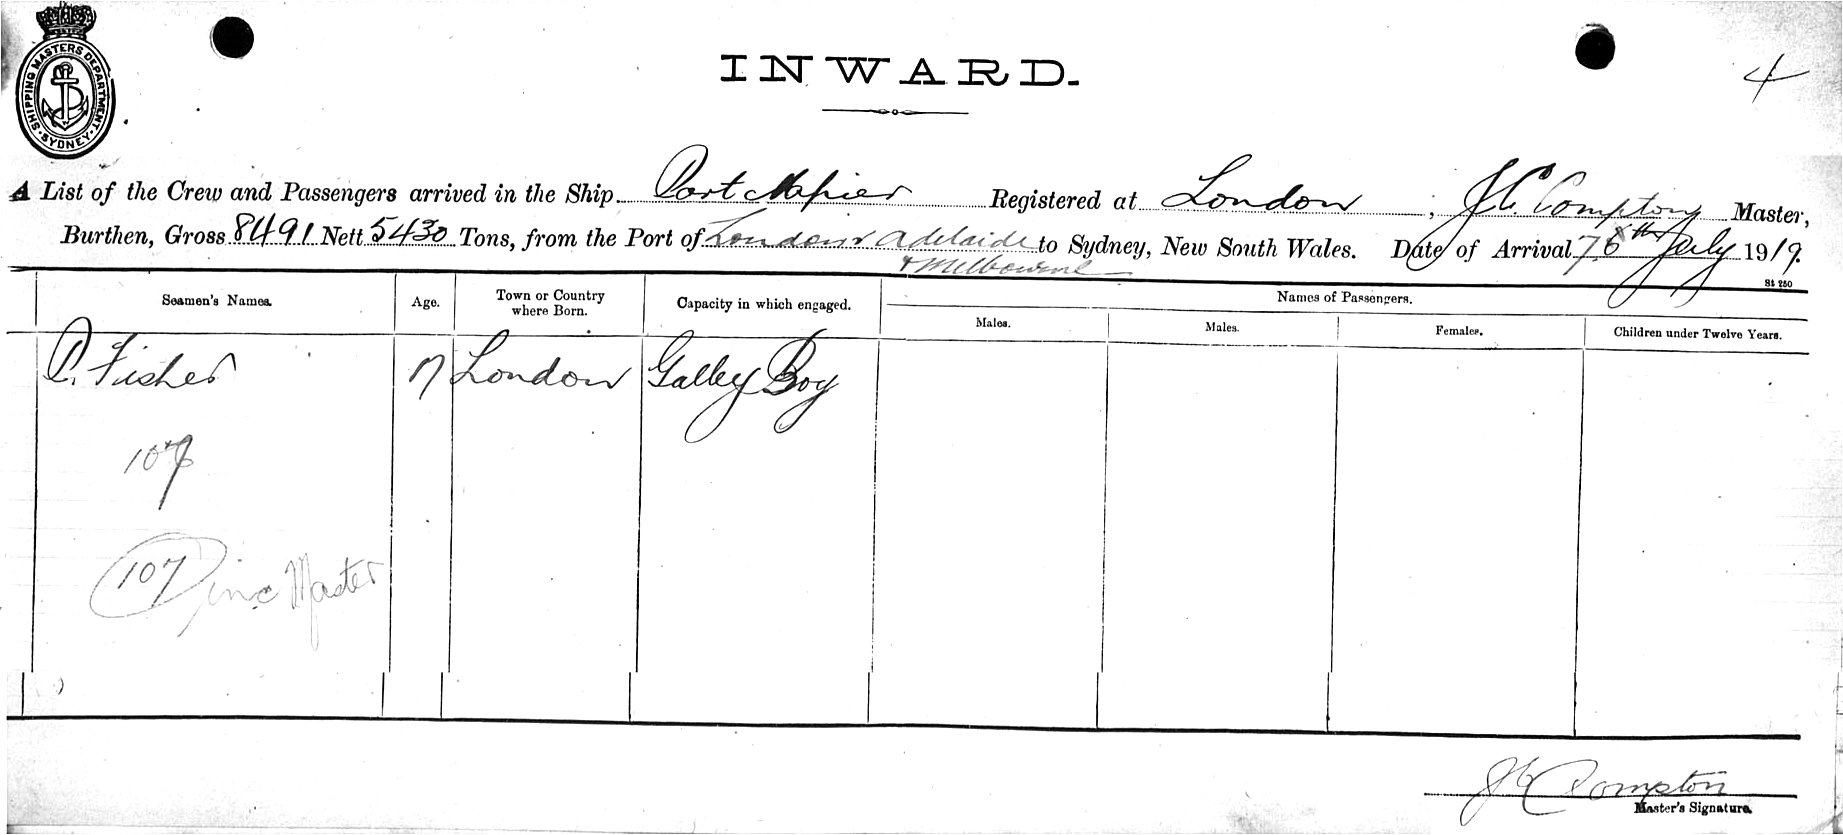 SHIPPING MASTERS DEPARTMENT. SYDNEY.
INWARD.
4
A List of the Crew and Passengers arrived in the Ship Port Napier Registered at London ; J C Compton Master,
Burthen, Gross 8491 Nett 5430 Tons, from the Port of London & Adelaide to Sydney, New South Wales. Date of Arrival July 1919.
& Melbourne
St 250
Seamen's Names. Age. Town or Country where Born. Capacity in which engaged. Names of Passengers.
Males. Males. Females. Children under Twelve Years.
C. Fisher 17 London Galley Boy
107
107 inc Master
J C Compton
Master's Signature.